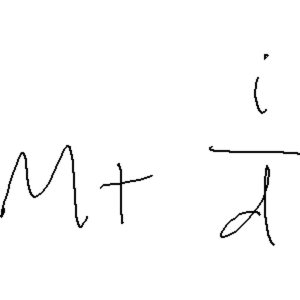 M + \frac{i}{d}